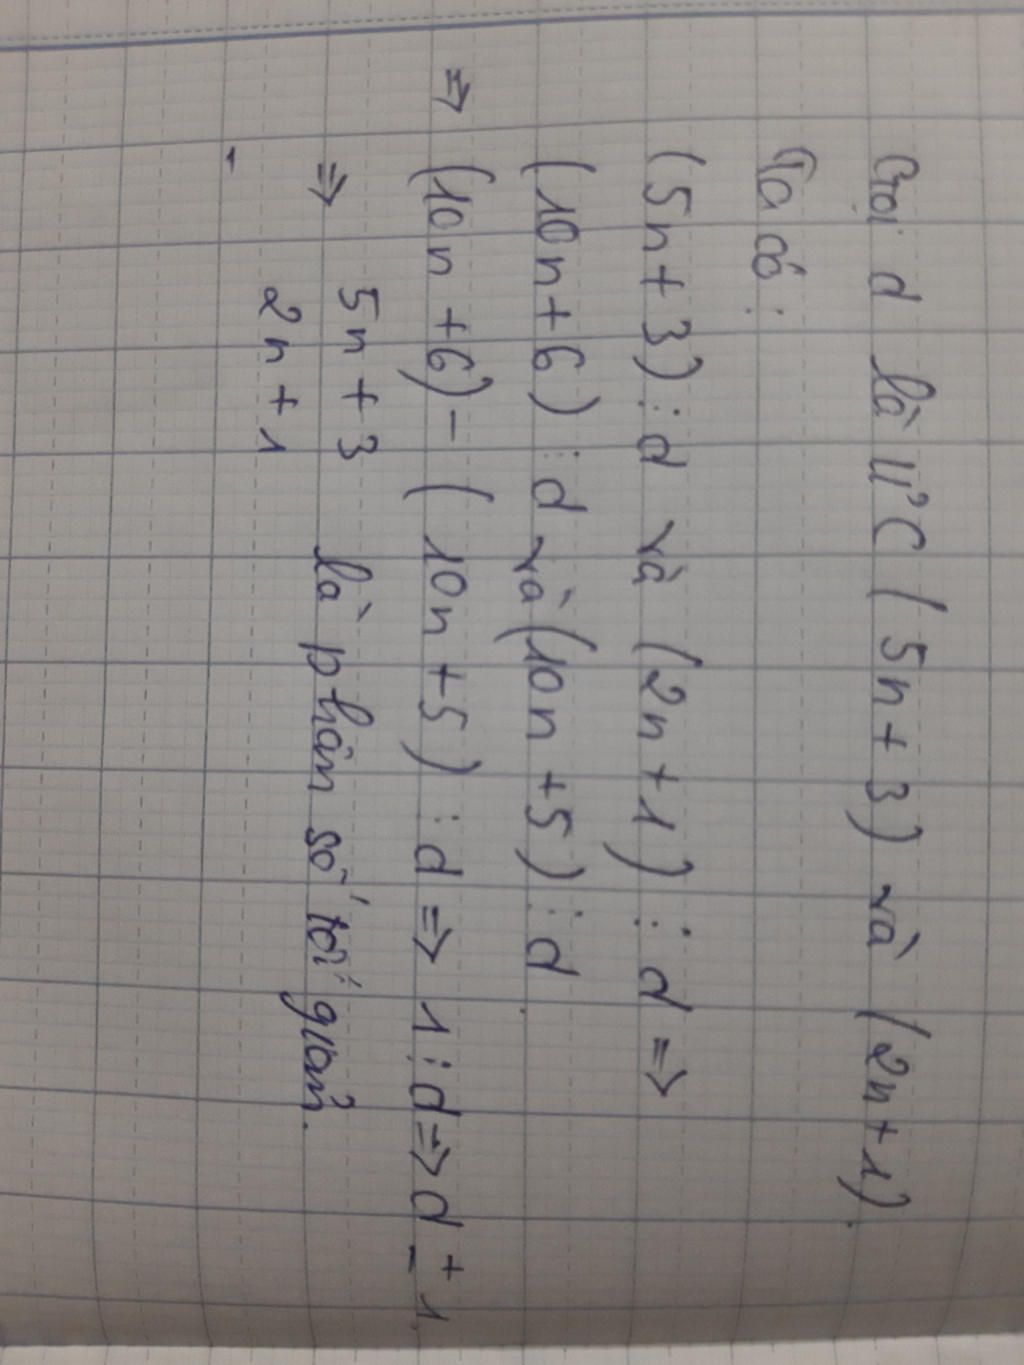 Gọi d là ƯC (5n+3) và (2n+1).
Ta có:
(5n+3) ⋮ d và (2n+1) ⋮ d =>
(10n+6) ⋮ d và (10n+5) ⋮ d
=> (10n+6) - (10n+5) ⋮ d => 1 ⋮ d => d ± 1
=> 5n+3 là phân số tối giản.
2n+1